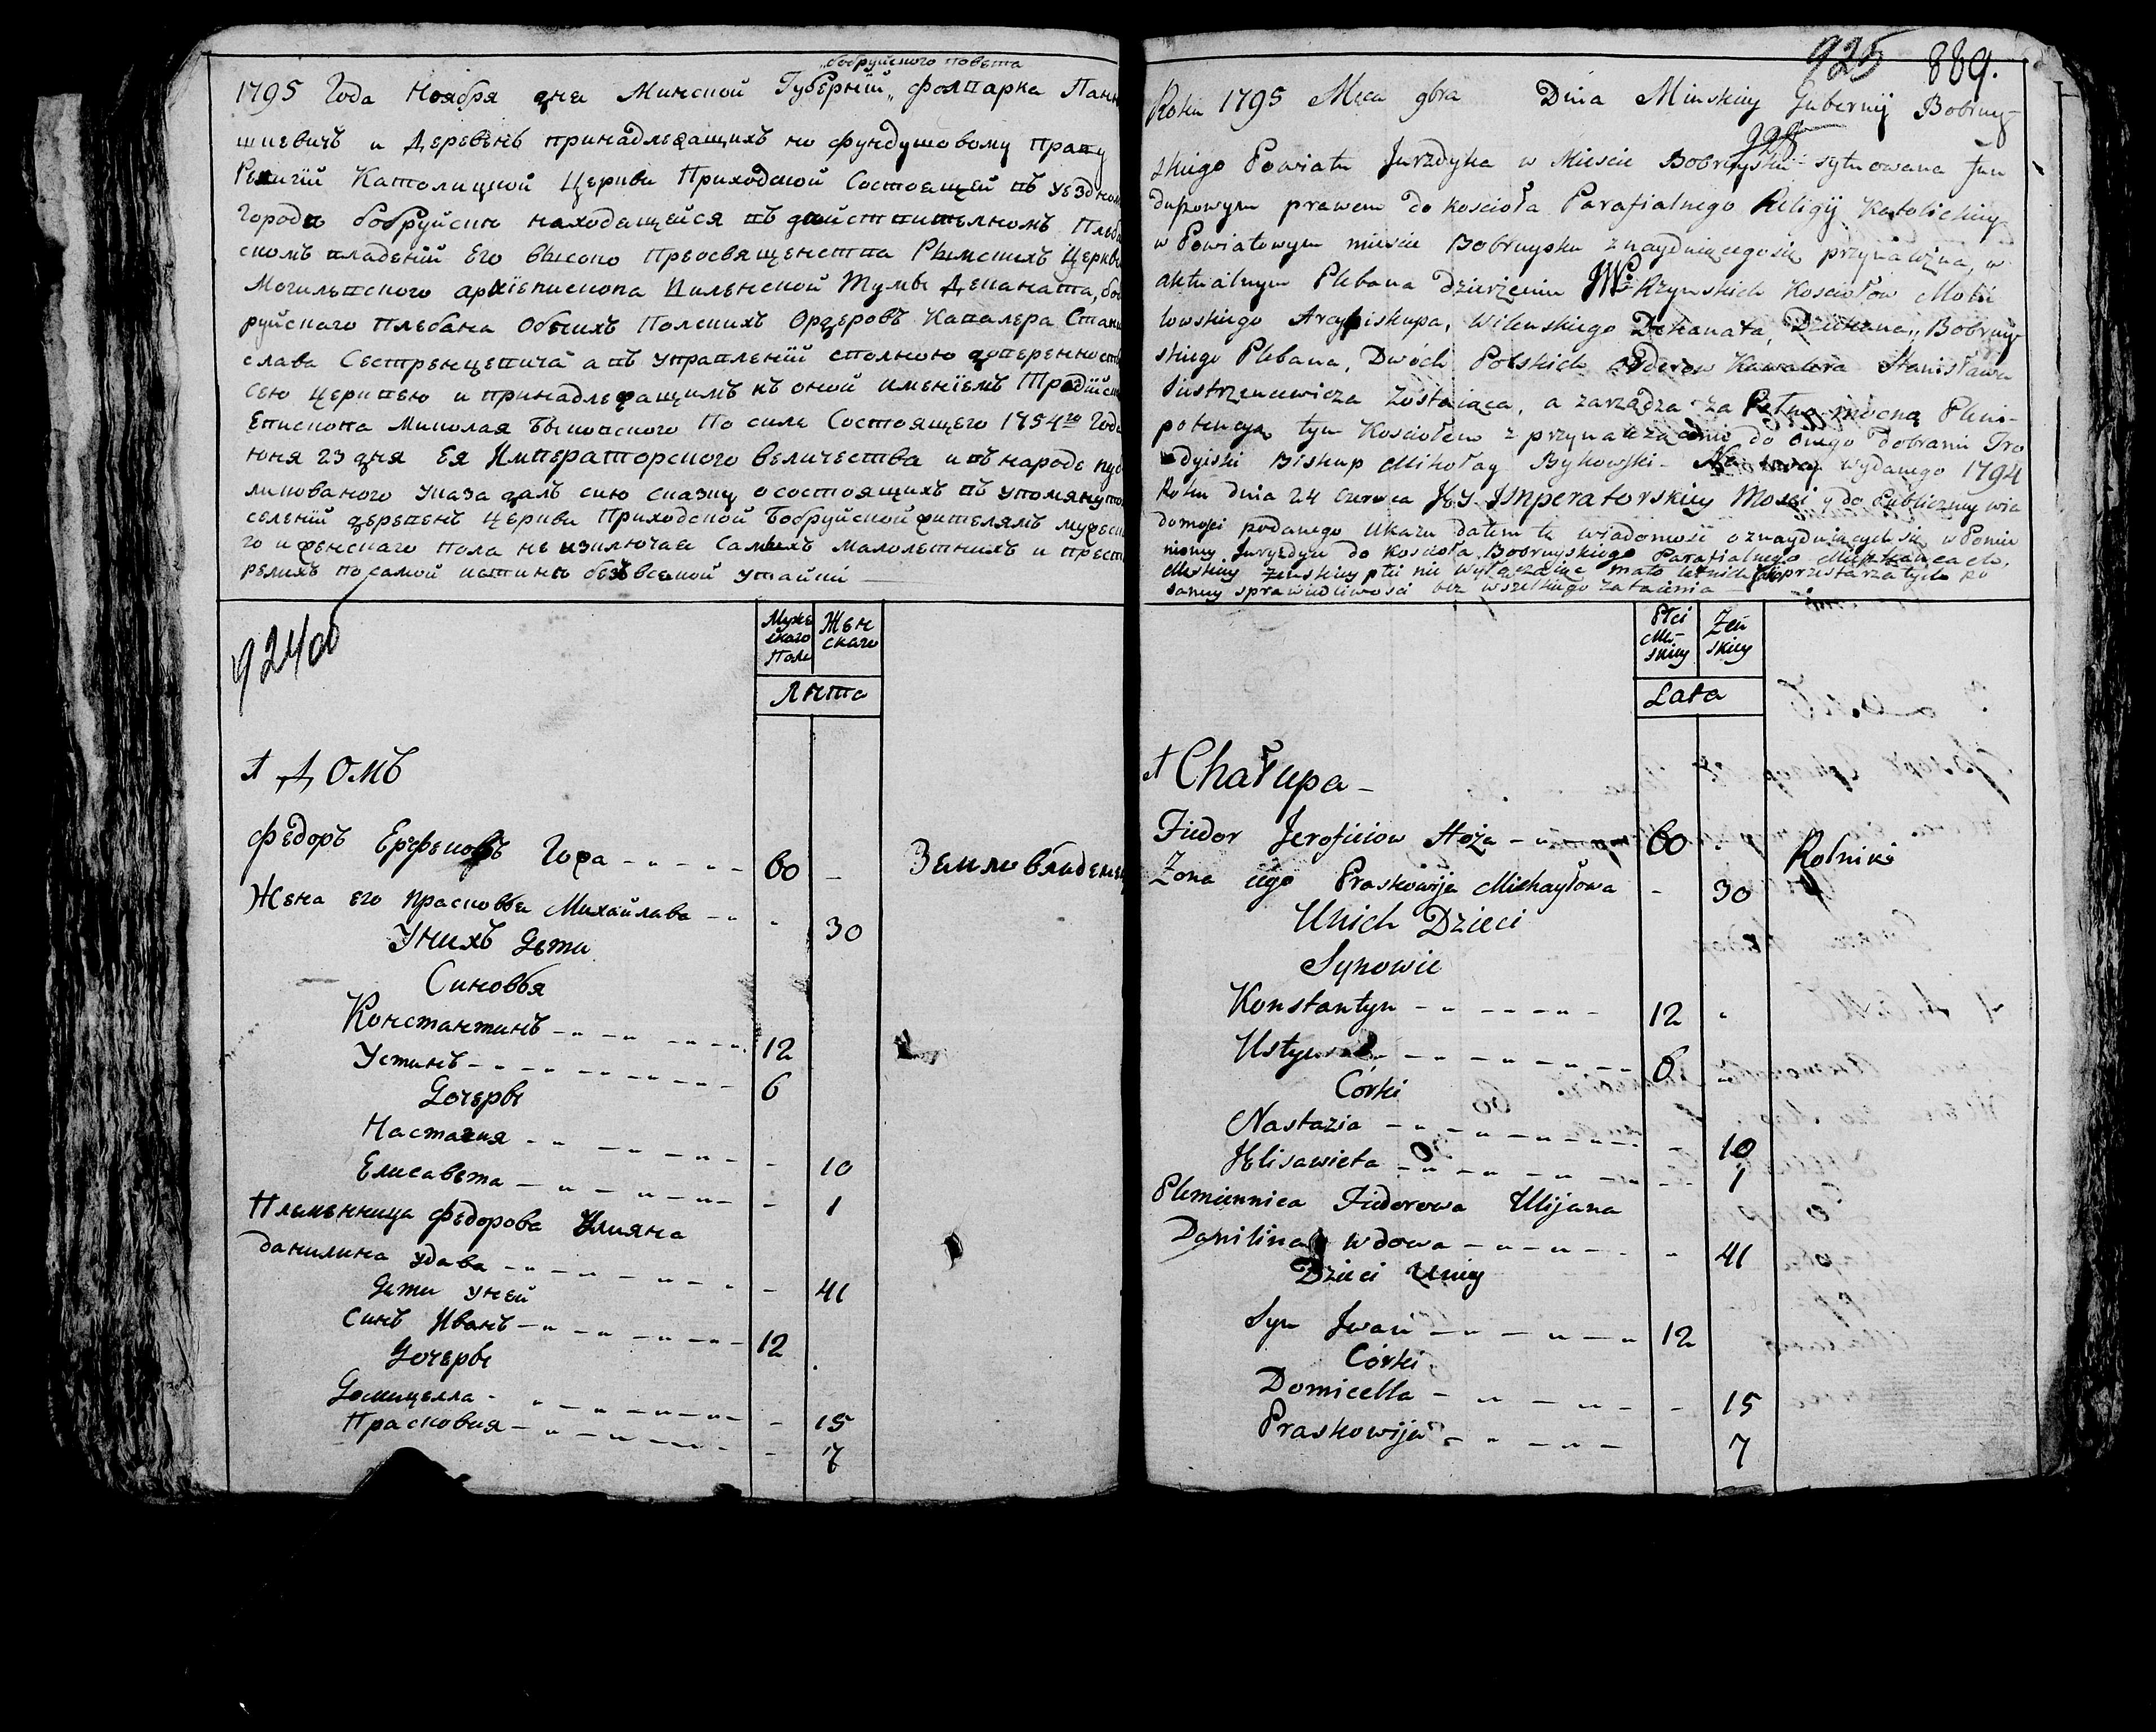 бобруйского повета
1795 Года Ноября дня Минской Губернїй „ фолпарка Панк
шиевичъ и Деревень принадлежащихъ по фундушовому прапу
Религїй Католицкой Церкви Приходской Состоящей пъ уездном
Городи бобруйски находящейся пъ дийстпителномъ Плеба
скомъ пладенїй Его высоко преосвященстпа Рымскихъ Церкве
Могилыпского архїепископа Пиленской Тумы Деканата, боб
руйскаго плебана обоихъ Полскихъ Ордеровъ Капалера Стани
слава Сестренцепича а пъ упраплениїй сполною доперенность
сею церкпею и принадлежащимъ къ оной именїемъ Традїйск
Епископа Миколая Быкопского По силе Состоящего 1794го Года
юня 23 дня Ея Императорского величества и пъ народе пуб
ликованого указа далъ сию сказку о состоящихъ пъ упомянутом
селенїй дерепенъ церкви Приходской Бобруйской жителяхъ мужеск
го и женскаго пола не изключая самыхъ малолетнихъ и прест
релихъ по самой истинне безъ всякой утайки
924об
Мужескаго Пола
Женскаго
Лѣта
1 Домъ
Федоръ Ерофеювъ Гожа 60 Землювладелец
Жена его прасковья Михайлава 30
У нихъ дети
Синовья
Константинъ 12
Устинъ 6
Дочеры
Настасия 10
Елисавета 1
Племенница Федорова Улияна
данилина удава 41
дети у ней
Синъ Иванъ 12
Дочеры
Домицелла 15
Прасковия 7
925 889.
Roku 1795 Mca 9bra Dnia Minskiey Gubernij Bobruy-
skiego Powiatu Jurzdyka w Miescie Bobruysku sytuowana fun
duszowym prawem do kościoła Parafialnego Religij Katolickiey
w Powiatowym miescie Bobruysku znayduiącego się przynależna, w
aktualnym Plebana dzierżeniu JW Rzymskich Kosciołow Mohi
lowskiego Arcybiskupa, Wilenskiego Dekanata, Dziekana, Bobruy
skiego Plebana, Dwóch Polskich Orderow Kawalera Stanisława
Siestrzencewicza zostaiąca, a zarządza za Pełną mocną Pleni-
potencyą tym Kosciołem z przynależącemi do onego dobrami Tro
dyiski Biskup Mikołay Bykowski wydanego 1794
Roku dnia 24 czerwca Jey Jmperatorskiey Mosci y do Publiczney wia
domosci podanego Ukazu dałem tę wiadomość o znayduiących się w Pomie
nioney Juryzdyce do kościoła Bobruyskiego Parafialnego Mieszkancach,
Męskiey Zenskiey płci nie wyłączaiąc mało letnich y przestarzałych po
samey sprawiedliwosci bez wszelkiego zataienia
Płci Męskiey
Zenskiey
Lata
1 Chałupa
Fiedor Jerofieiow Hoża 60 Rolnik
Zona iego Praskowija Michayłowa 30
U nich Dzieci
Synowie
Konstantyn 12
Ustyn 6
Córki
Nastazia 10
Jelisawieta 1
Plemiennica Fiedorowa Ulijana
Danilina wdowa 41
Dzieci u niey
Syn Jwan 12
Córki
Domicella 15
Praskowija 7